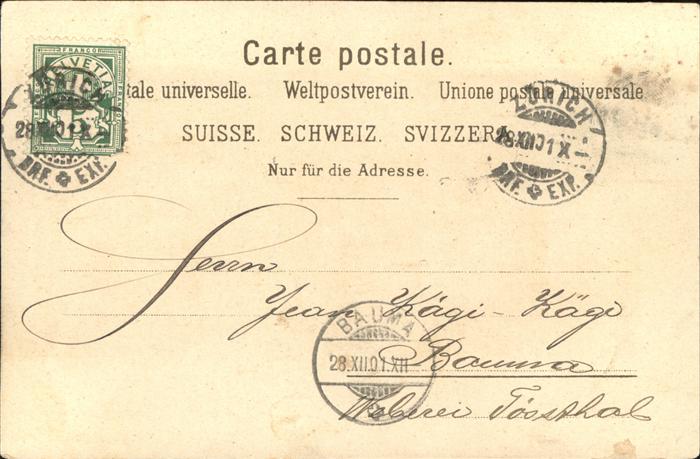 Carte postale.
FRANCO
HELVETIA
tale universelle. Weltpostverein. Unione postale universale
SUISSE. SCHWEIZ. SVIZZERA
Nur für die Adresse.
ZÜRICH
28.XII.01.X
BRF. EXP.
ZÜRICH 1
28.XII.01 X
BRF. EXP.
Herrn
Jean Kägi-Kägi
BAUMA
28.XII.01.XII
Bauma
Weberei Tössthal